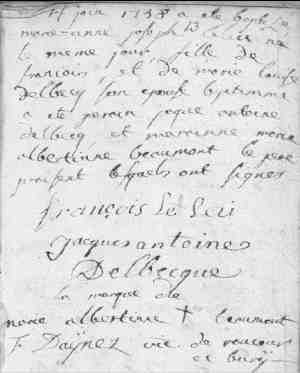 juin 1738 a été baptisée
marie anne joseph née
le meme jour fille de
francois et de marie
delbecq son epouse légitimme
a ete parain jaque antoine
delbecq et maraïnne marie
albertinne beaumont le pere
present lesquels ont signes
françois le
jacques antoine
Delbecque
la marque de
marie albertine + beaumont
F Daÿnez curé de
et